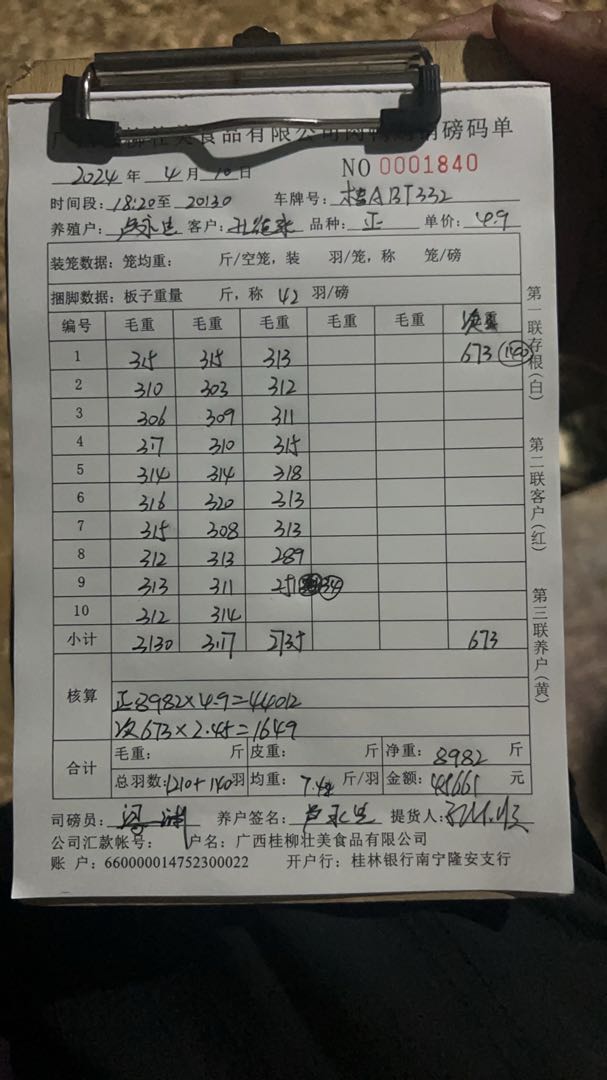 壮美食品有限公司 磅码单
2024 年 4 月 10 日 NO 0001840
时间段: 18:20 至 20:30 车牌号: 桂ABT332
养殖户: 客户: 品种: 正 单价: 4.9
装笼数据: 笼均重: 斤/空笼, 装 羽/笼, 称 笼/磅
捆脚数据: 板子重量 斤, 称 42 羽/磅
编号 毛重 毛重 毛重 毛重 毛重
1 315 315 313 673 (140)
2 310 303 312
3 306 309 311
4 317 310 315
5 314 314 318
6 316 320 313
7 315 308 313
8 312 313 289
9 313 311 251 (34)
10 312 314
小计 3130 3117 2735 673
核算
正8982×4.9=44012
次673×2.45=1649
合计 毛重: 斤 皮重: 斤 净重: 8982 斤
总羽数: 1210+140 羽 均重: 7.42 斤/羽 金额: 45661 元
司磅员: 养户签名: 提货人:
公司汇款帐号: 户名: 广西桂柳壮美食品有限公司
账 户: 660000014752300022 开户行: 桂林银行南宁隆安支行
第一联存根(白)
第二联客户(红)
第三联养户(黄)